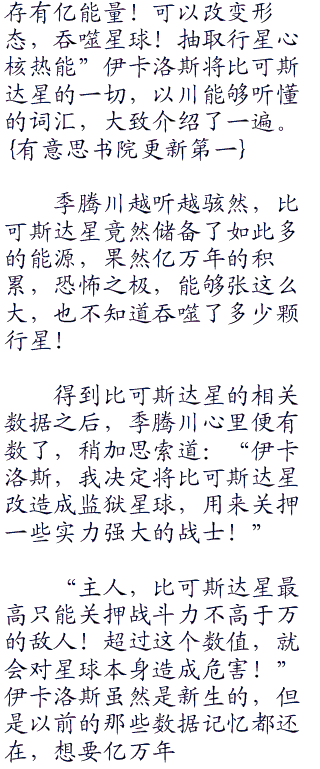 存有亿能量！可以改变形
态，吞噬星球！抽取行星心
核热能”伊卡洛斯将比可斯
达星的一切，以川能够听懂
的词汇，大致介绍了一遍。
{有意思书院更新第一}
季腾川越听越骇然，比
可斯达星竟然储备了如此多
的能源，果然亿万年的积
累，恐怖之极，能够张这么
大，也不知道吞噬了多少颗
行星！
得到比可斯达星的相关
数据之后，季腾川心里便有
数了，稍加思索道：“伊卡
洛斯，我决定将比可斯达星
改造成监狱星球，用来关押
一些实力强大的战士！”
“主人，比可斯达星最
高只能关押战斗力不高于万
的敌人！超过这个数值，就
会对星球本身造成危害！”
伊卡洛斯虽然是新生的，但
是以前的那些数据记忆都还
在，想要亿万年